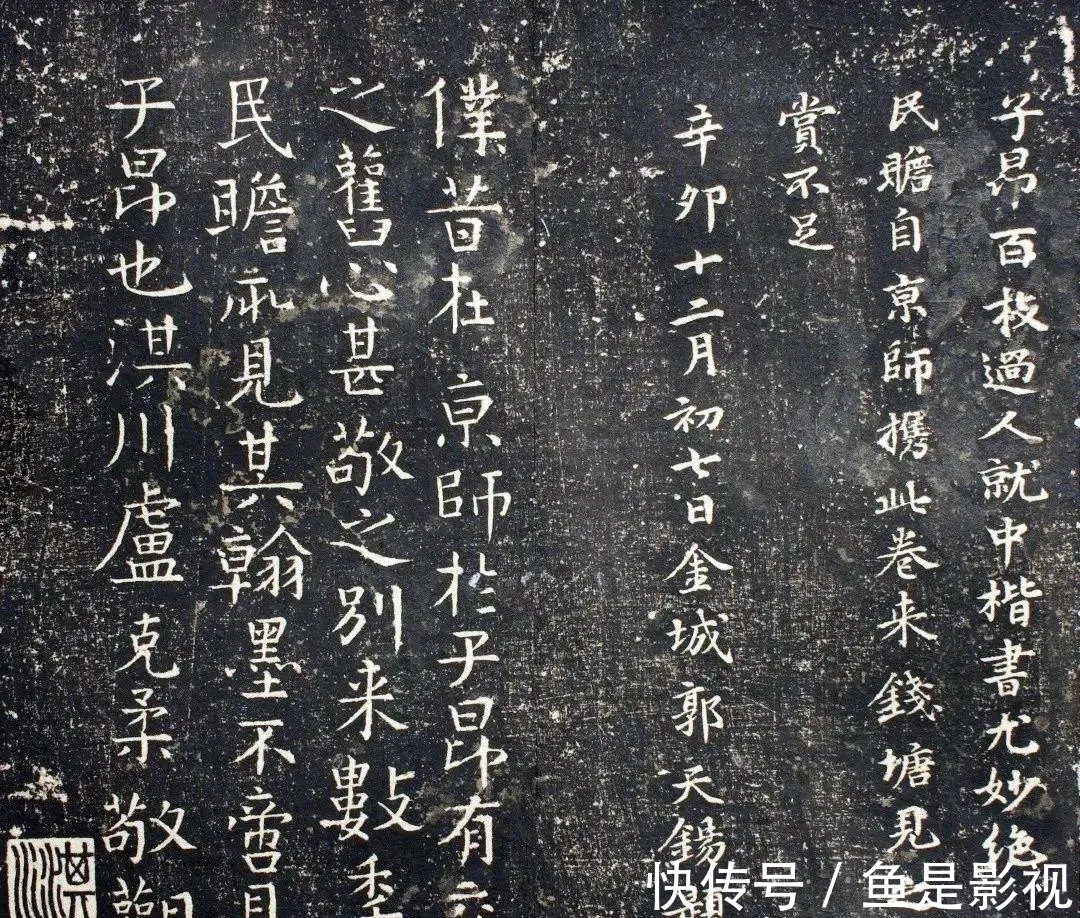 子昂百技過人就中楷書尤妙絶
民瞻自亰師携此卷来錢塘見
賞不足
辛卯十二月初七日金城郭天錫題
僕昔在亰師於子昂有
之舊心甚敬之别来數季
民瞻見其翰墨不啻見
子昂也淇川盧克柔敬觀
快传号 / 鱼是影视